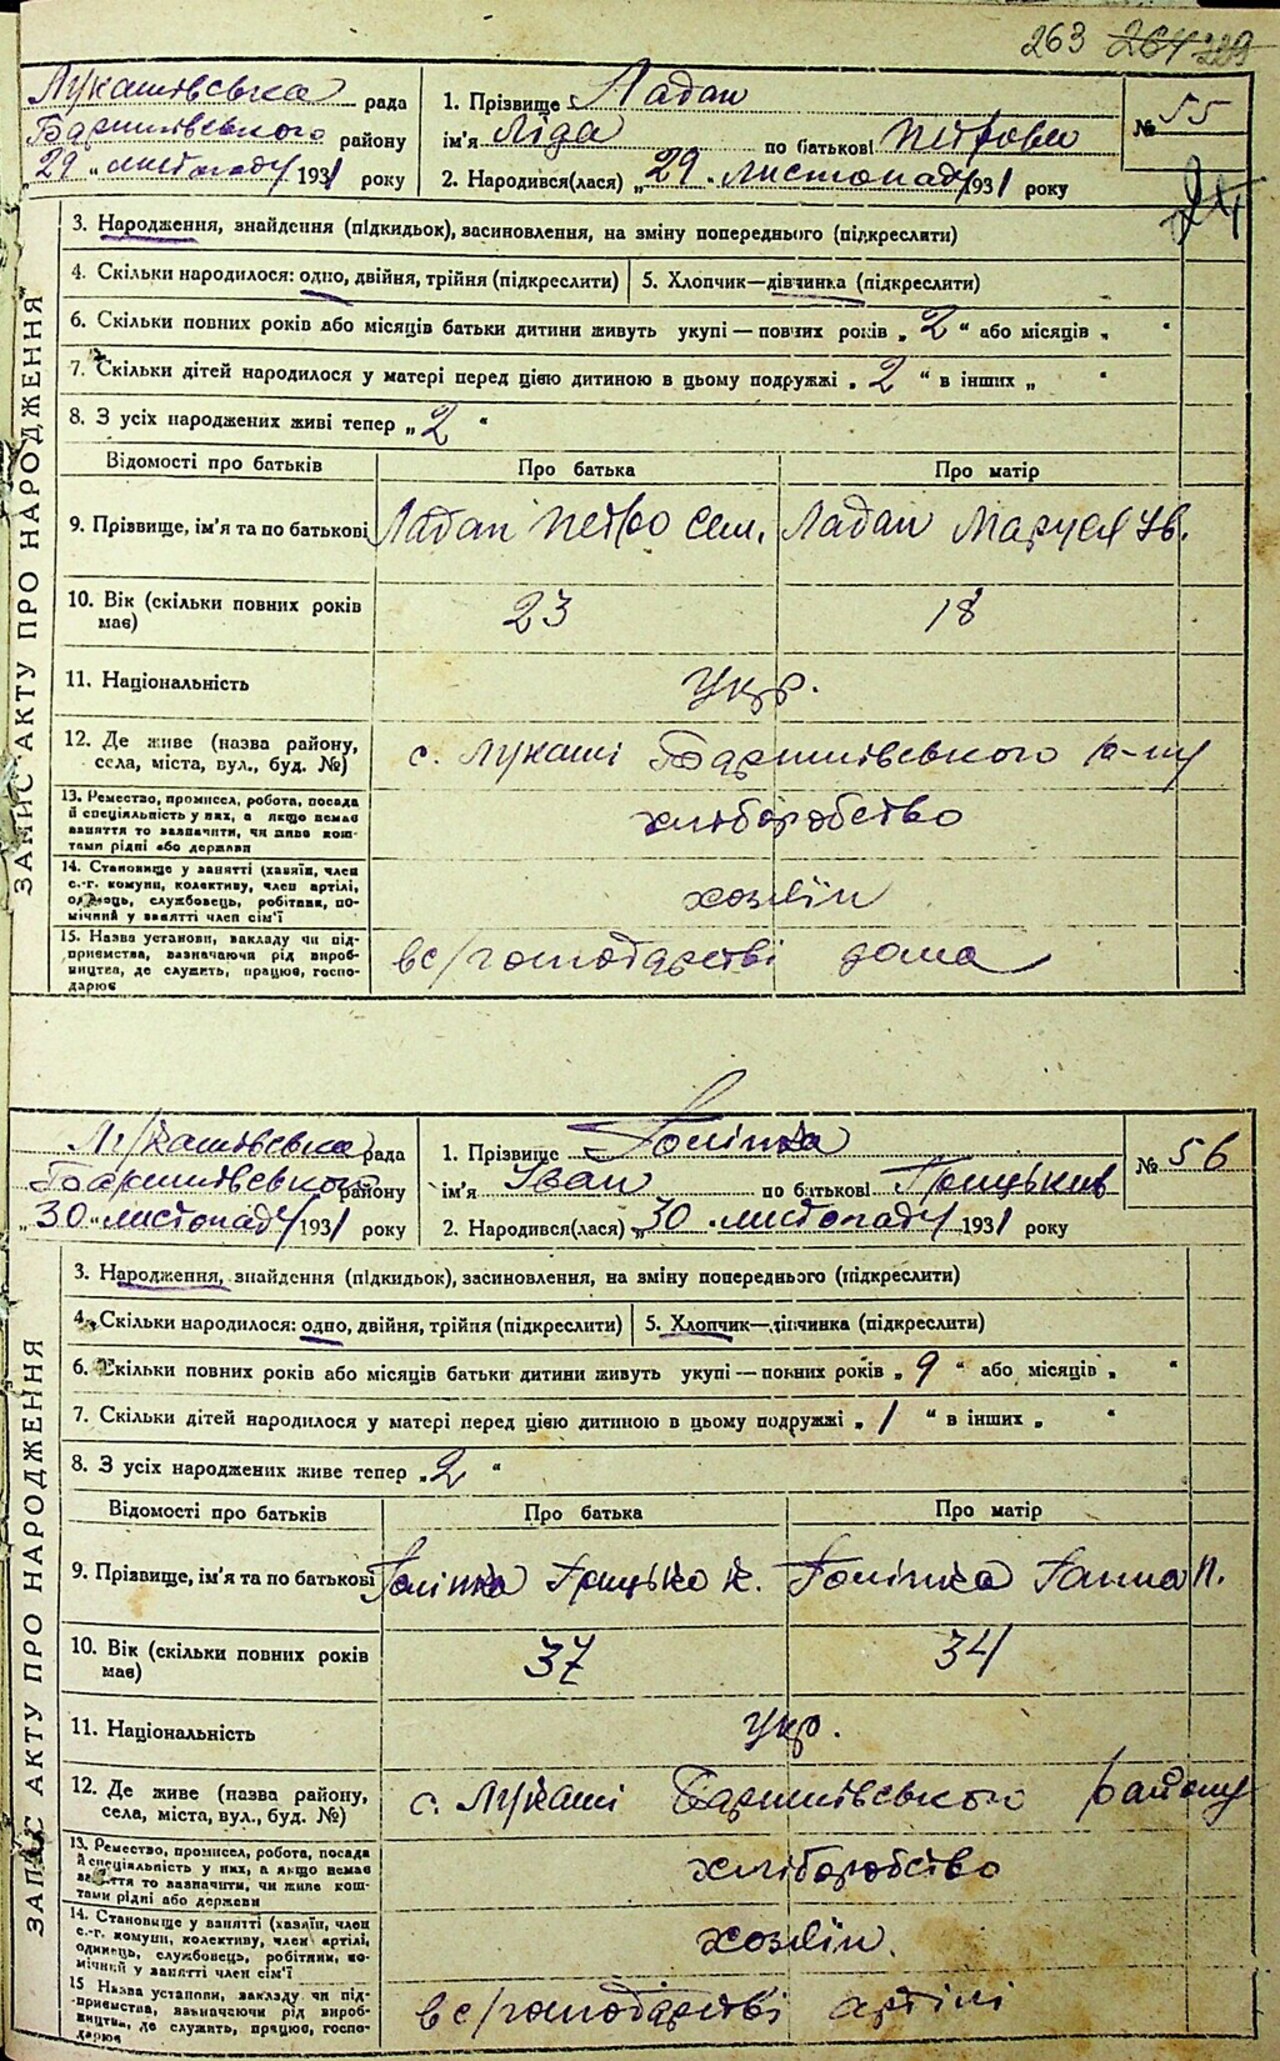 263 264 229
Лукашівська рада
Баришівського району
„29 „ листопаду 1931 року
1. Прізвище Ладан
ім'я Ліда по батькові Петровн
2. Народився(лася) „29 „ листопаду 1931 року
№ 55
ЗАПИС АКТУ ПРО НАРОДЖЕННЯ
3. Народження, знайдення (підкидьок), засиновлення, на зміну попереднього (підкреслити)
4. Скільки народилося: одно, двійня, трійня (підкреслити)
5. Хлопчик—дівчинка (підкреслити)
6. Скільки повних років або місяців батьки дитини живуть укупі — повних років „ 2 “ або місяців „ “
7. Скільки дітей народилося у матері перед цією дитиною в цьому подружжі „ 2 “ в інших „ “
8. З усіх народжених живі тепер „ 2 “
Відомості про батьків Про батька Про матір
9. Прізвище, ім'я та по батькові Ладан Петро Сем. Ладан Маруся Ів.
10. Вік (скільки повних років має) 23 18
11. Національність Укр.
12. Де живе (назва району, села, міста, вул., буд. №) с. Лукаші Баришівського р-ну
13. Ремество, промисел, робота, посада й спеціяльність у них, а якщо немає заняття то зазначити, чи живе коштами рідні або держави хліборобство
14. Становище у занятті (хазяїн, член с.-г. комуни, колективу, член артілі, одинець, службовець, робітник, помічний у занятті член сім'ї хозяїн
15. Назва установи, закладу чи підприємства, вазначаючи рід виробництва, де служить, працює, господарює в с/господарстві дома
Лукашівська рада
Баришівського району
„30 „ листопаду 1931 року
1. Прізвище Голінка
ім'я Іван по батькові Грицьків
2. Народився(лася) „30 „ листопаду 1931 року
№ 56
ЗАПИС АКТУ ПРО НАРОДЖЕННЯ
3. Народження, знайдення (підкидьок), засиновлення, на зміну попереднього (підкреслити)
4. Скільки народилося: одно, двійня, трійня (підкреслити)
5. Хлопчик—дівчинка (підкреслити)
6. Скільки повних років або місяців батьки дитини живуть укупі — повних років „ 9 “ або місяців „ “
7. Скільки дітей народилося у матері перед цією дитиною в цьому подружжі „ 1 “ в інших „ “
8. З усіх народжених живе тепер „ 2 “
Відомості про батьків Про батька Про матір
9. Прізвище, ім'я та по батькові Голінка Грицько К. Голінка Ганна П.
10. Вік (скільки повних років має) 37 34
11. Національність Укр.
12. Де живе (назва району, села, міста, вул., буд. №) с. Лукаші Баришівського району
13. Ремество, промисел, робота, посада й спеціяльність у них, а якщо немає заняття то вазначити, чи живе коштами рідні або держави хліборобство
14. Становище у занятті (хазяїн, член с.-г. комуни, колективу, член артілі, одинець, службовець, робітник, помічний у занятті член сім'ї хозяїн.
15 Назва установи, закладу чи підприємства, вазначаючи рід виробництва, де служить, працює, господарює в с/господарстві артілі